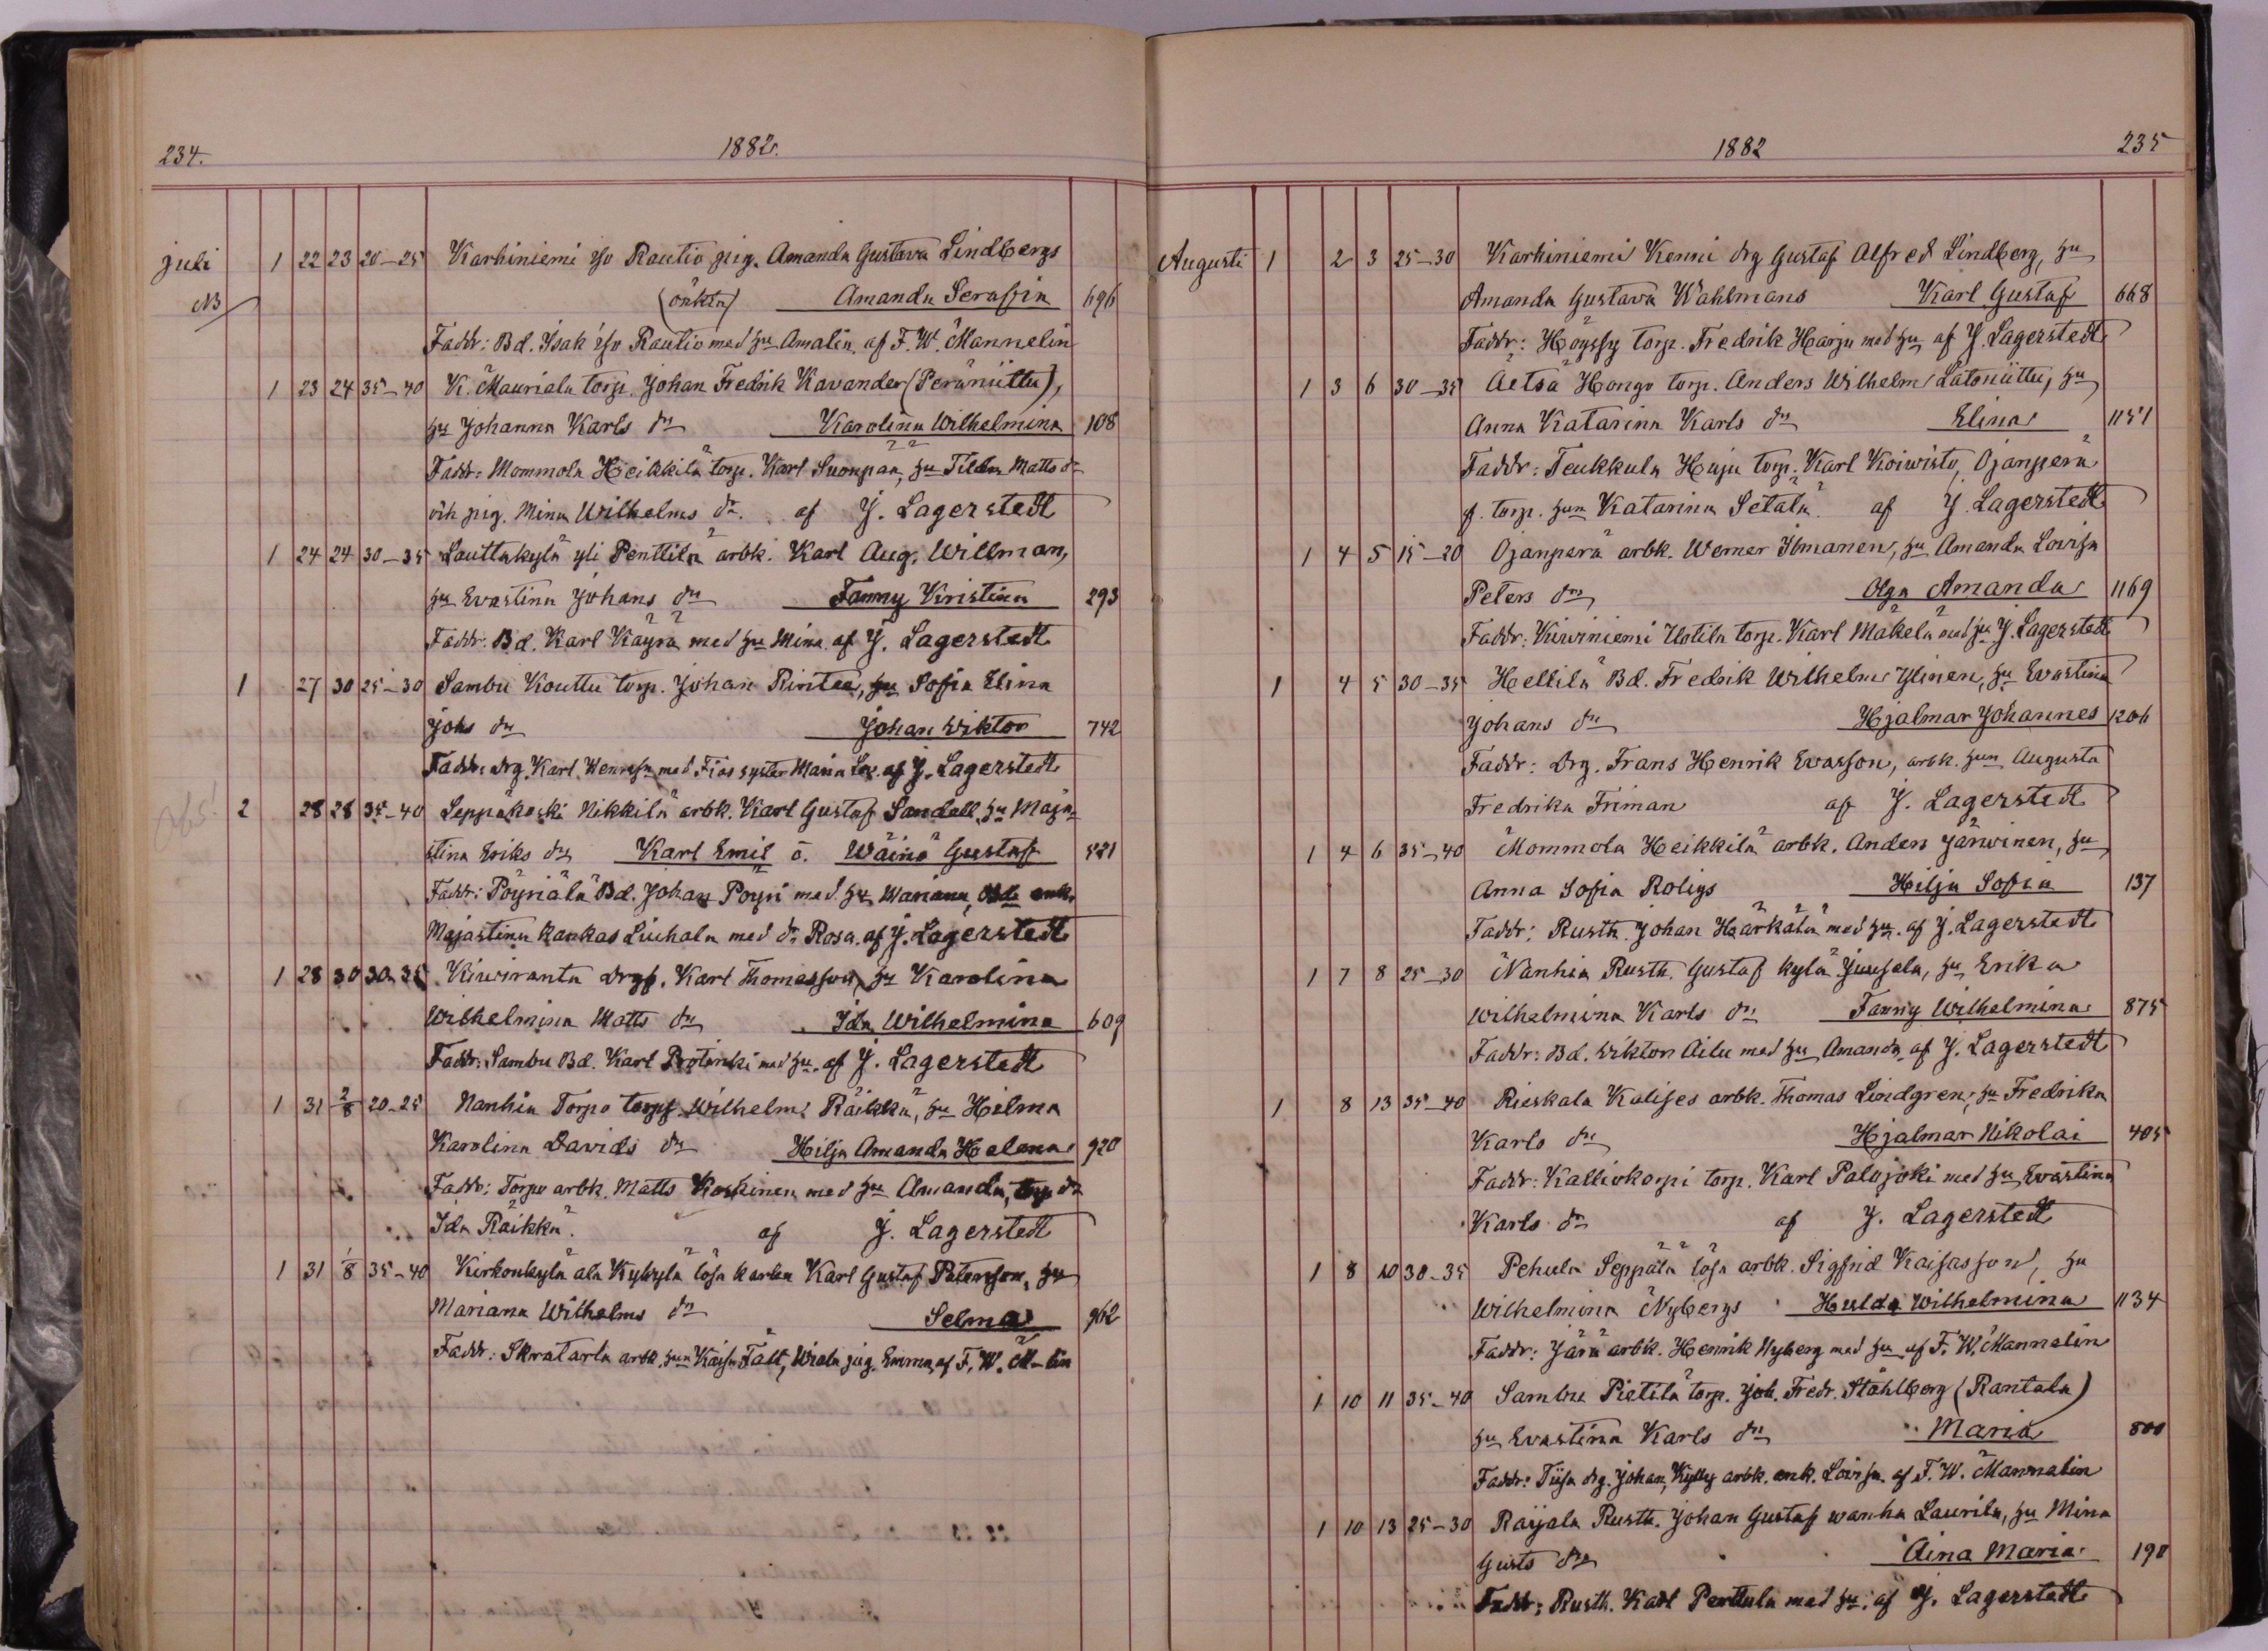 234. 1882.
juli 1 22 23 20-25 Karhiniemi iso Rautio pig. Amanda Gustava Lindbergs
NB (oäkta) Amanda Serafia 696
Faddr: Bd. Isak iso Rautio med hu Amalia af F. W. Mannelin
1 23 24 35-40 K. Mauriala torp. Johan Fredrik Kavander (Peräniittu),
hu Johanna Karls dr Karolina Wilhelmina 108
Faddr: Mommola Heikkilä torp. Karl Suonpää, hu Tilda Matts dr
och pig. Mina Wilhelms dr. af J. Lagerstedt
1 24 24 30-35 Lauttakylä yli Penttilä arbk. Karl Aug. Willman,
hu Evastina Johans dr Fanny Kristina 293
Faddr: Bd. Karl Käyrä med hu Mina af J. Lagerstedt
1 27 30 25-30 Sambu Kouttu torp. Johan Rintee, hu Sofia Elina
Johs dr Johan Wiktor 742
Faddr: drg. Karl med syster Maria Lov. af J. Lagerstedt
obs! 2 28 28 35-40 Leppäkoski Nikkilä arbk. Karl Gustaf Sandell, hu Maja
stina Eriks dr Karl Emil o. Wäinö Gustaf 521
Faddr: Pöyriälä Bd. Johan Pöyri med hu Mariana, enk.
Majastina Kankas Liuhala med dr Rosa. af J. Lagerstedt
1 28 30 30-35 Kiviranta Drgs. Karl Thomasson, hu Karolina
Wilhelmina Matts dr Ida Wilhelmina 609
Faddr: Sambu Bd. Karl med hu. af J. Lagerstedt
1 31 2/8 20-25 Nanhia Torpo torps. Wilhelm Räikkä, hu Hilma
Karolina Davids dr Hilja Amanda Helena 920
Faddr: Torpo arbk. Matts Koskinen med hu Amanda, torp dr
Ida Räikkä. af J. Lagerstedt
1 31 1/8 35-40 Kirkonkylä ala Kylä lösa karlen Karl Gustaf Petersson, hu
Mariana Wilhelms dr Selma 962
Faddr: Skratarla arbk. hun Kaisa Fält, pig. Emma, af F. W. M-lin
1882 235
Augusti 1 2 3 25-30 Karhiniemi Kenni drg Gustaf Alfred Lindberg, hu
Amanda Gustava Wahlmans Karl Gustaf 668
Faddr: Höyssy torp. Fredrik Harju med hu af J. Lagerstedt
1 3 6 30-35 Aetsä Hongo torp. Anders Wilhelm Latoniittu, hu
Anna Katarina Karls dr Elina 1151
Faddr: Teukkula Huju torp. Karl Koiwisto, Ojanperä
f. torp. hun Katarina Setälä. af J. Lagerstedt
1 4 5 15-20 Ojanperä arbk. Werner Ilmanen, hu Amanda Lovisa
Peters dr Olga Amanda 1169
Faddr: Kiviniemi Uotila torp. Karl Mäkelä med hu J. Lagerstedt
1 4 5 30-35 Hellilä Bd. Fredrik Wilhelm Ylinen, hu Evastina
Johans dr Hjalmar Johannes 1206
Faddr: Drg. Frans Henrik Evasson, arbk. hun Augusta
Fredrika Friman af J. Lagerstedt
1 4 6 35-40 Mommola Heikkilä arbk. Anders Järvinen, hu
Anna Sofia Roligs Hilja Sofia 137
Faddr: Rusth. Johan Härkälä med hu. af J. Lagerstedt
1 7 8 25-30 Nanhia Rusth. Gustaf kylä Juusela, hu Erika
Wilhelmina Karls dr Fanny Wilhelmina 875
Faddr: Bd. Wiktor Ailu med hu Amanda af J. Lagerstedt
1 8 13 35-40 Rieskala Kalises arbk. Thomas Lindgren, hu Fredrika
Karls dr Hjalmar Nikolai 405
Faddr: Kalliokorpi torp. Karl Palojoki med hu Evastina
Karls dr af J. Lagerstedt
1 8 10 30-35 Pehula Seppälä lösa arbk. Sigfrid Kaisasson, hu
Wilhelmina Nybergs Hulda Wilhelmina 1134
Faddr: Järä arbk. Henrik Nyberg med hu af F. W. Mannelin
1 10 11 35-40 Sambu Pietilä torp. Joh. Fredr. Ståhlberg (Rantala)
hu Evastina Karls dr Maria 800
Faddr: Tiisa drg. Johan, Kylly arbk. enk. Lovisa af F. W. Mannelin
1 10 13 25-30 Raijala Rusth. Johan Gustaf wanha Laurila, hu Mina
Gusts dr Aina Maria 190
Faddr: Rusth. Karl Penttala med hu. af J. Lagerstedt